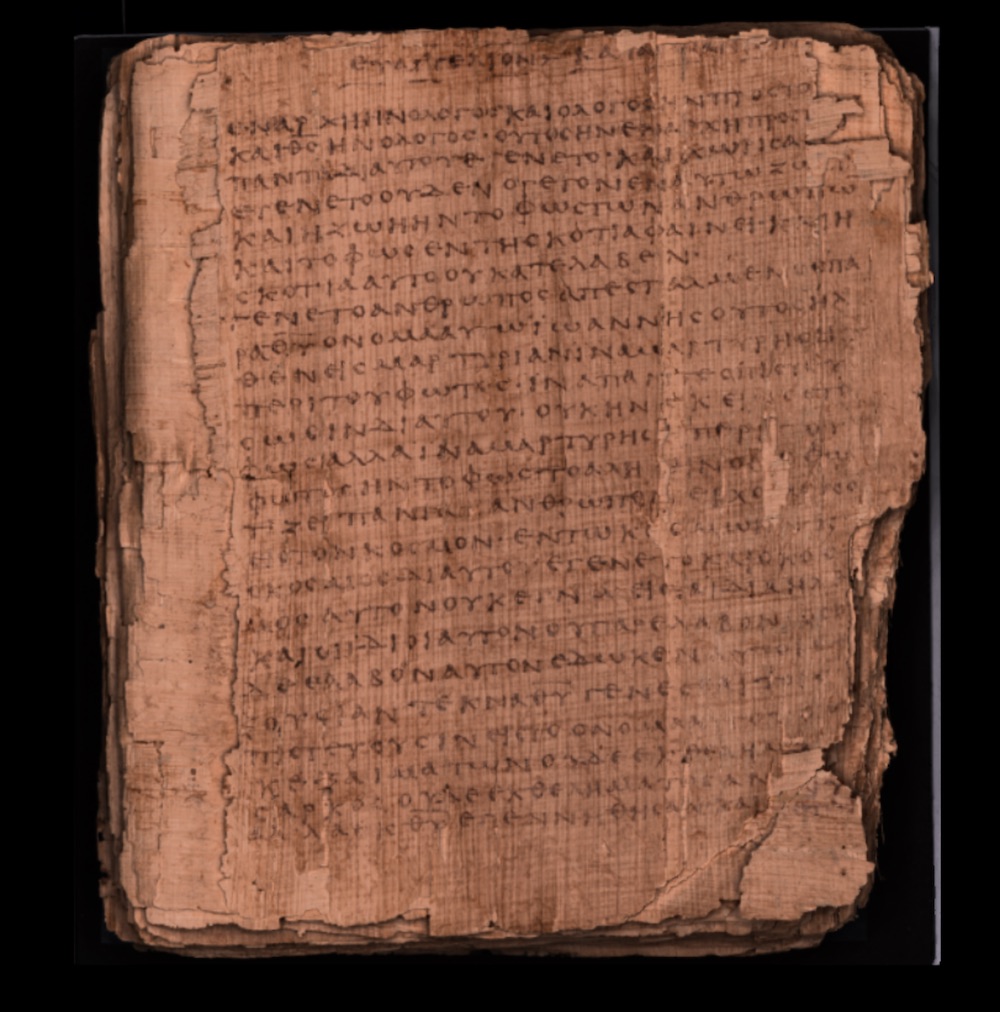 ΕΥΑΓΓΕΛΙΟΝ ΚΑΤΑ
ΕΝ ΑΡΧΗ ΗΝ Ο ΛΟΓΟϹ ΚΑΙ Ο ΛΟΓΟϹ ΗΝ ΠΡΟϹ ΤΟ
ΚΑΙ Θ̅Ϲ̅ ΗΝ Ο ΛΟΓΟϹ · ΟΥΤΟϹ ΗΝ ΕΝ ΑΡΧΗ ΠΡΟϹ
ΠΑΝΤΑ ΔΙ ΑΥΤΟΥ ΕΓΕΝΕΤΟ · ΚΑΙ ΧΩΡΙϹ Α
ΕΓΕΝΕΤΟ ΟΥΔΕΝ Ο ΓΕΓΟΝΕΝ ΕΝ ΑΥΤΩ ΖΩ
ΚΑΙ Η ΖΩΗ ΗΝ ΤΟ ΦΩϹ ΤΩΝ ΑΝΘΡΩΠΩ
ΚΑΙ ΤΟ ΦΩϹ ΕΝ ΤΗ ϹΚΟΤΙΑ ΦΑΙΝΕΙ · ΚΑΙ Η
ϹΚΟΤΙΑ ΑΥΤΟ ΟΥ ΚΑΤΕΛΑΒΕΝ ·
ΕΓΕΝΕΤΟ ΑΝΘΡΩΠΟϹ ΑΠΕϹΤΑΛΜΕΝΟϹ ΠΑ
ΡΑ Θ̅Υ̅ ΟΝΟΜΑ ΑΥΤΩ ΪΩΑΝΝΗϹ ΟΥΤΟϹ ΗΛ
ΘΕΝ ΕΙϹ ΜΑΡΤΥΡΙΑΝ ΙΝΑ ΜΑΡΤΥΡΗϹΗ
ΠΕΡΙ ΤΟΥ ΦΩΤΟϹ · ΙΝΑ ΠΑΝΤΕϹ ΠΙϹΤΕΥ
ϹΩϹΙΝ ΔΙ ΑΥΤΟΥ · ΟΥΚ ΗΝ ΕΚΕΙΝΟϹ ΤΟ
ΦΩϹ ΑΛΛΑ ΙΝΑ ΜΑΡΤΥΡΗϹΗ ΠΕΡΙ ΤΟΥ
ΦΩΤΟϹ ΗΝ ΤΟ ΦΩϹ ΤΟ ΑΛΗΘΙΝΟΝ Ο ΦΩ
ΤΙΖΕΙ ΠΑΝΤΑ ΑΝΘΡΩΠΟΝ ΕΡΧΟΜΕΝΟΝ
ΕΙϹ ΤΟΝ ΚΟϹΜΟΝ · ΕΝ ΤΩ ΚΟϹΜΩ ΗΝ
ΚΟϹΜΟϹ ΔΙ ΑΥΤΟΥ ΕΓΕΝΕΤΟ ΚΑΙ Ο ΚΟϹ
ΜΟϹ ΑΥΤΟΝ ΟΥΚ ΕΓΝΩ ΕΙϹ ΤΑ ΙΔΙΑ ΗΛΘΕ
ΚΑΙ ΟΙ ΙΔΙΟΙ ΑΥΤΟΝ ΟΥ ΠΑΡΕΛΑΒΟΝ ΟϹΟΙ
ΔΕ ΕΛΑΒΟΝ ΑΥΤΟΝ ΕΔΩΚΕΝ ΑΥΤΟΙϹ
ΟΥϹΙΑΝ ΤΕΚΝΑ Θ̅Υ̅ ΓΕΝΕϹΘΑΙ ΤΟΙϹ
ΠΙϹΤΕΥΟΥϹΙΝ ΕΙϹ ΤΟ ΟΝΟΜΑ
Κ ΕΞ ΑΙΜΑΤΩΝ ΟΥΔΕ ΕΚ ΘΕΛΗΜΑ
ϹΑΡΚΟϹ ΟΥΔΕ ΕΚ ΘΕΛΗΜΑΤΟϹ ΑΝ
ΑΛΛΑ ΕΚ Θ̅Υ̅ ΕΓΕΝΝΗΘΗϹΑΝ ΚΑΙ